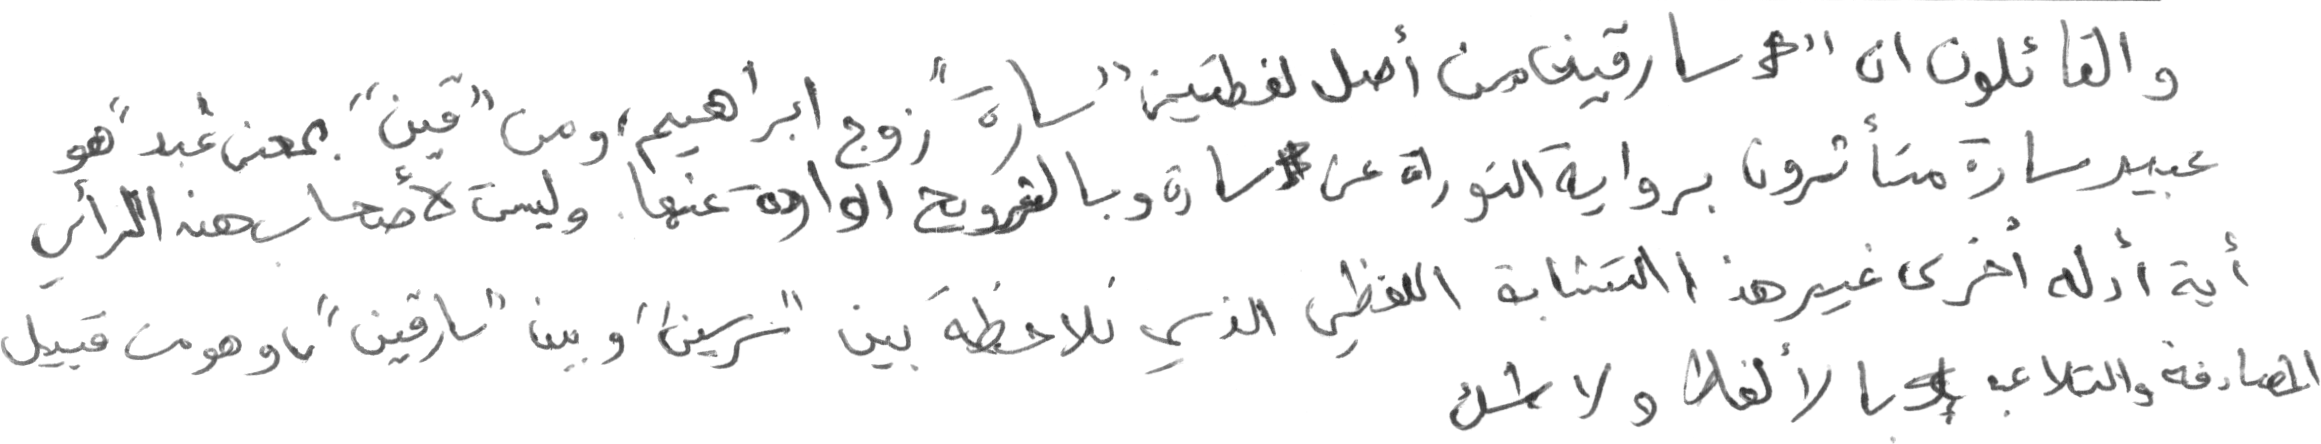 والقائلون ان "سارقين من أصل لفظتين "سارة" زوج ابراهيم، ومن "قين" بمعنى عبد "هو
عبيد سارة متأثرون برواية التوراة عن سارة وبالشروح الواردة عنها. وليست لأصحاب هذه الرأي
أية أدله أخرى غير هذا التشابة اللفظي الذي نلاحظة بين "سرسين" وبين "سارقين"، وهو من قبيل
المصادفة والتلاعب بالألفاظ ولا شك